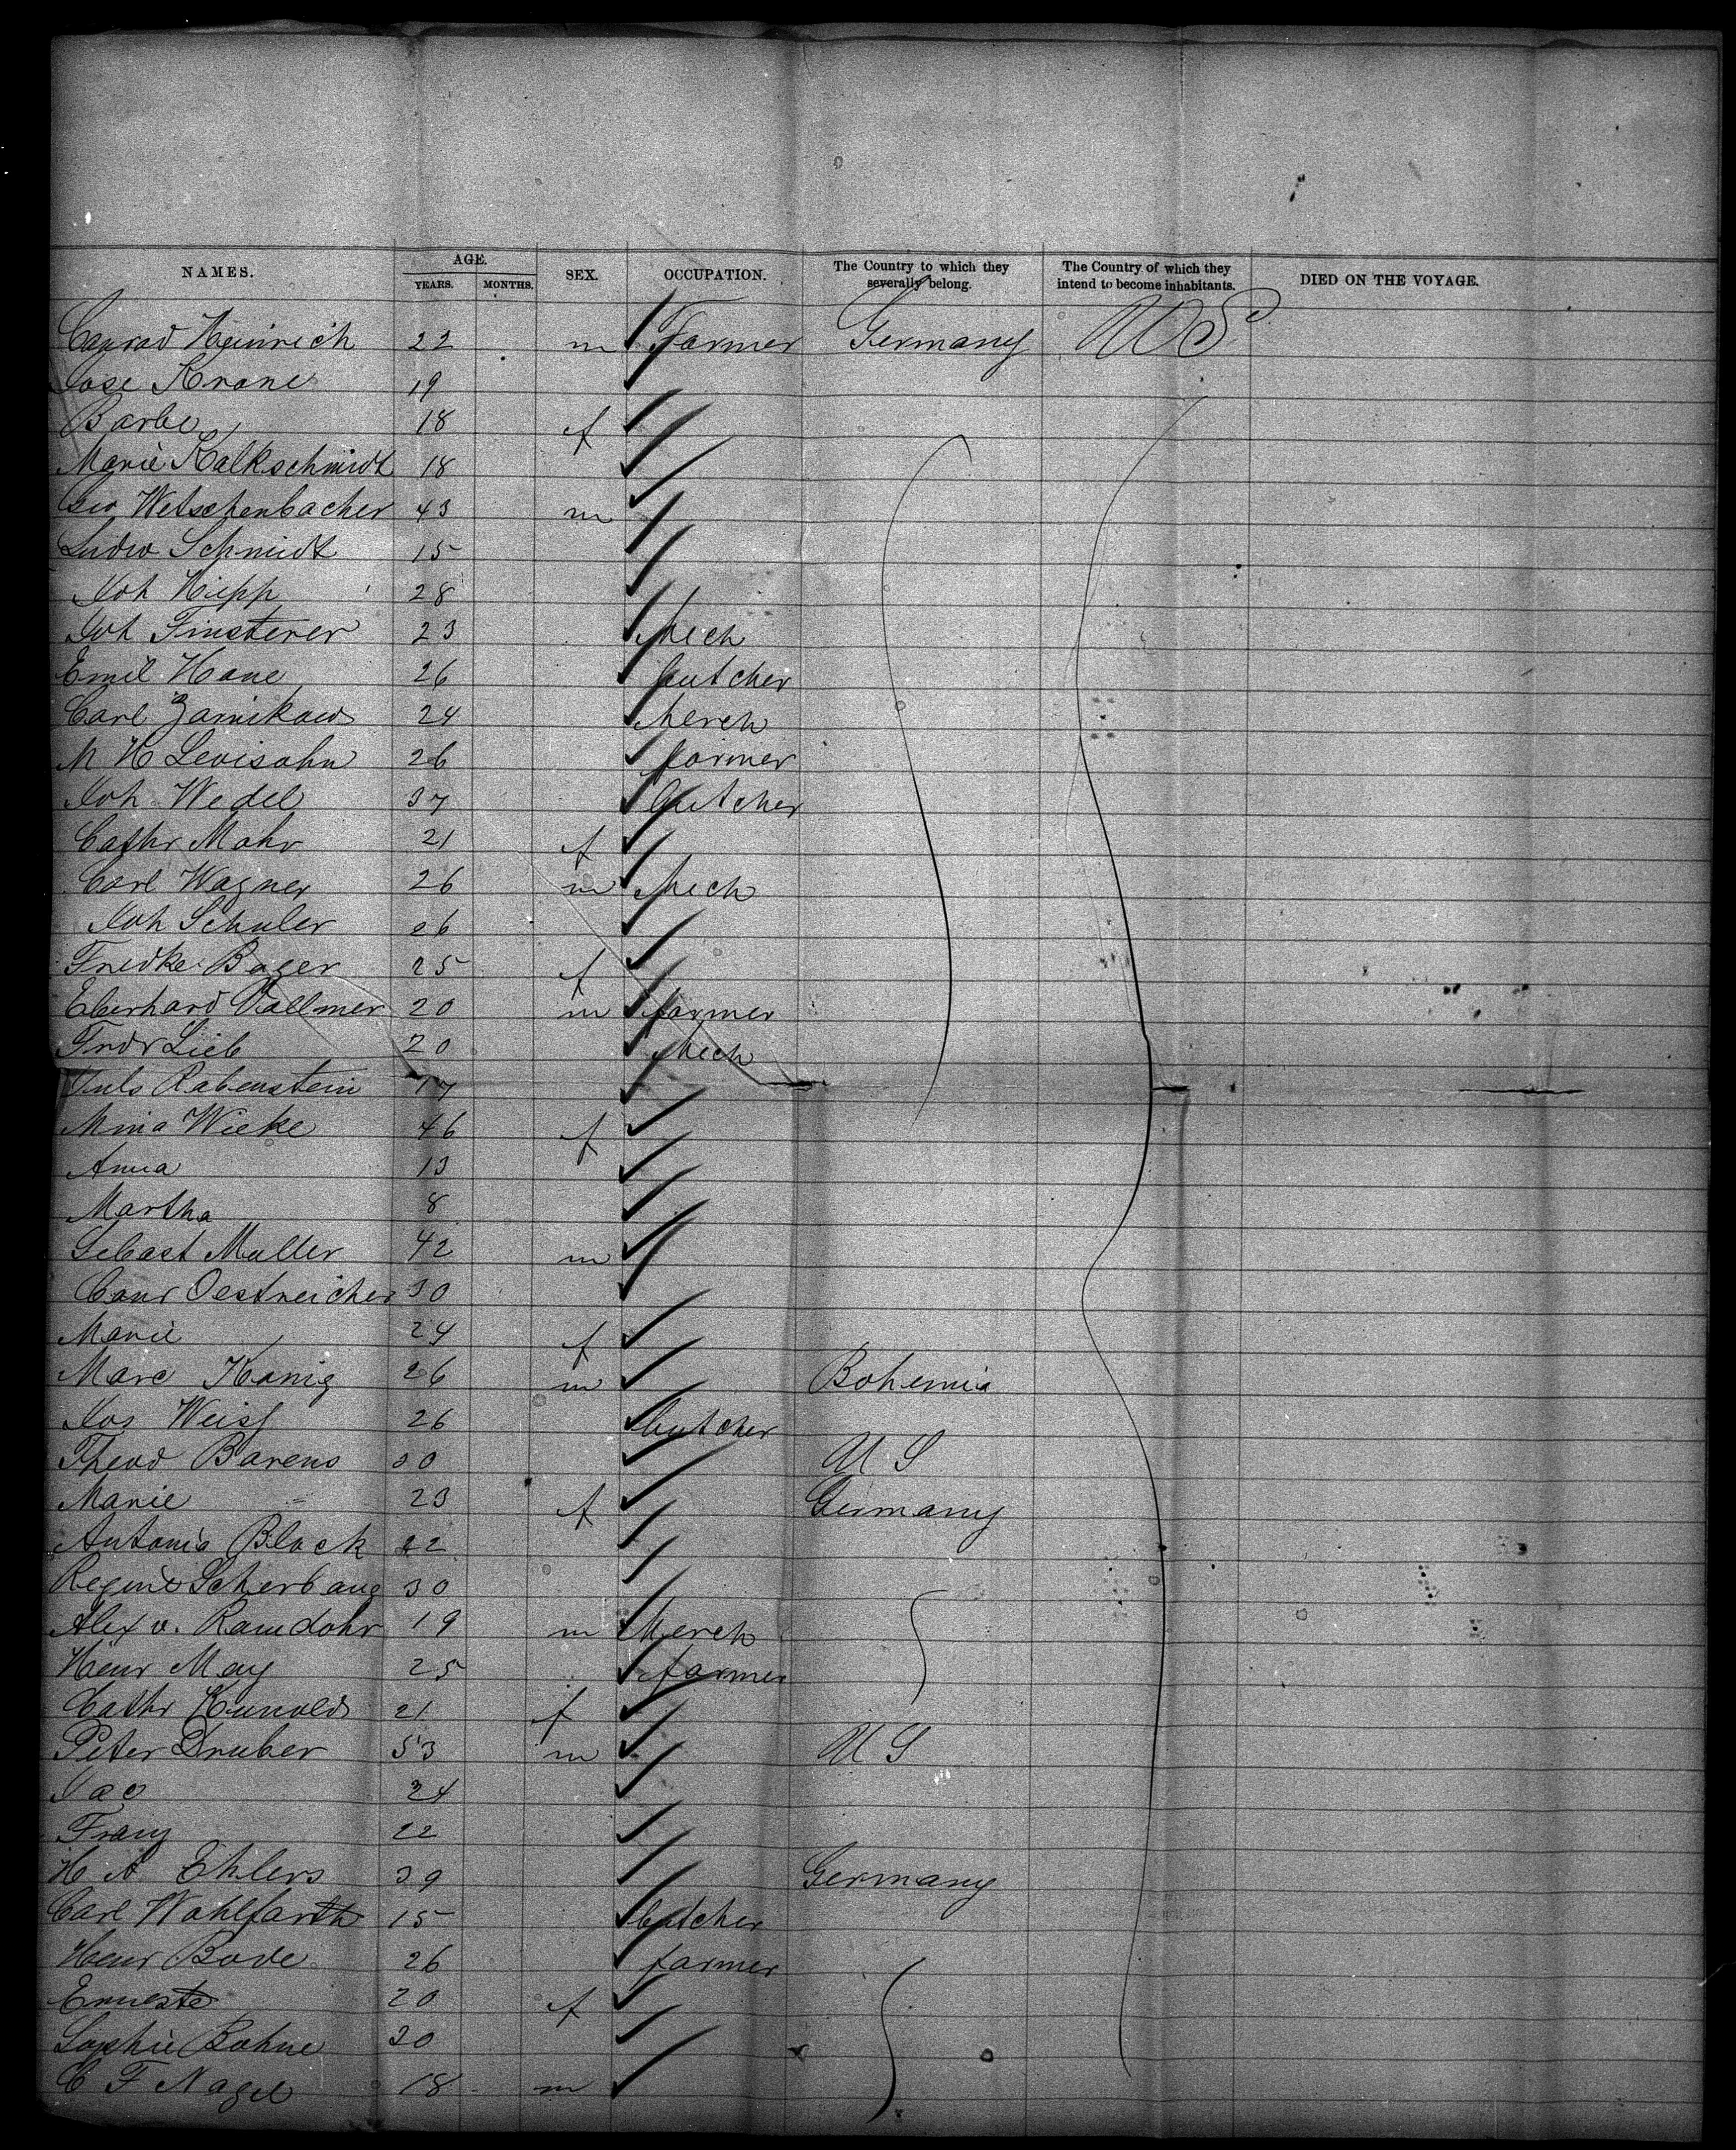 NAMES. AGE. YEARS. MONTHS. SEX. OCCUPATION. The Country to which they severally belong. The Country of which they intend to become inhabitants. DIED ON THE VOYAGE.
Conrad Heinrich 22 m Farmer Germany US
Jose Krone 19
Barbe 18 f
Marie Kalkschmidt 18
Geo Wetschenbacher 43 m
Ludw Schmidt 15
Joh Hepp 28
Joh Finsterer 23 Mech
Emil Hane 26 butcher
Carl Zamikow 24 Merch
M H Levisohn 26 farmer
Joh Wedel 37 butcher
Cathr Mohr 21 f
Carl Wagner 26 m Mech
Joh Schuler 26
Fredke Bager 25 f
Eberhard Vallmer 20 m farmer
Fredr Lieb 20 Mech
Juls Rabenstein 17
Mina Wieke 46 f
Anna 13
Martha 8
Sebast Muller 42 m
Conr Oestreicher 30
Marie 24 f
Marc Konig 26 m Bohemia
Jos Weiss 26 butcher
Theod Barens 30 U S
Marie 23 f Germany
Antonia Block 22
Regine Scherbaug 30
Alex v. Ramdohr 19 m Merch
Heinr May 25 farmer
Cathr Kunolds 21 f
Peter Druber 53 m U S
Jac 24
Franz 22
H A Ehlers 39 Germany
Carl Wohlfarth 15 butcher
Henr Bode 26 farmer
Erneste 20 f
Sophie Bohne 20
C F Nagel 18 m